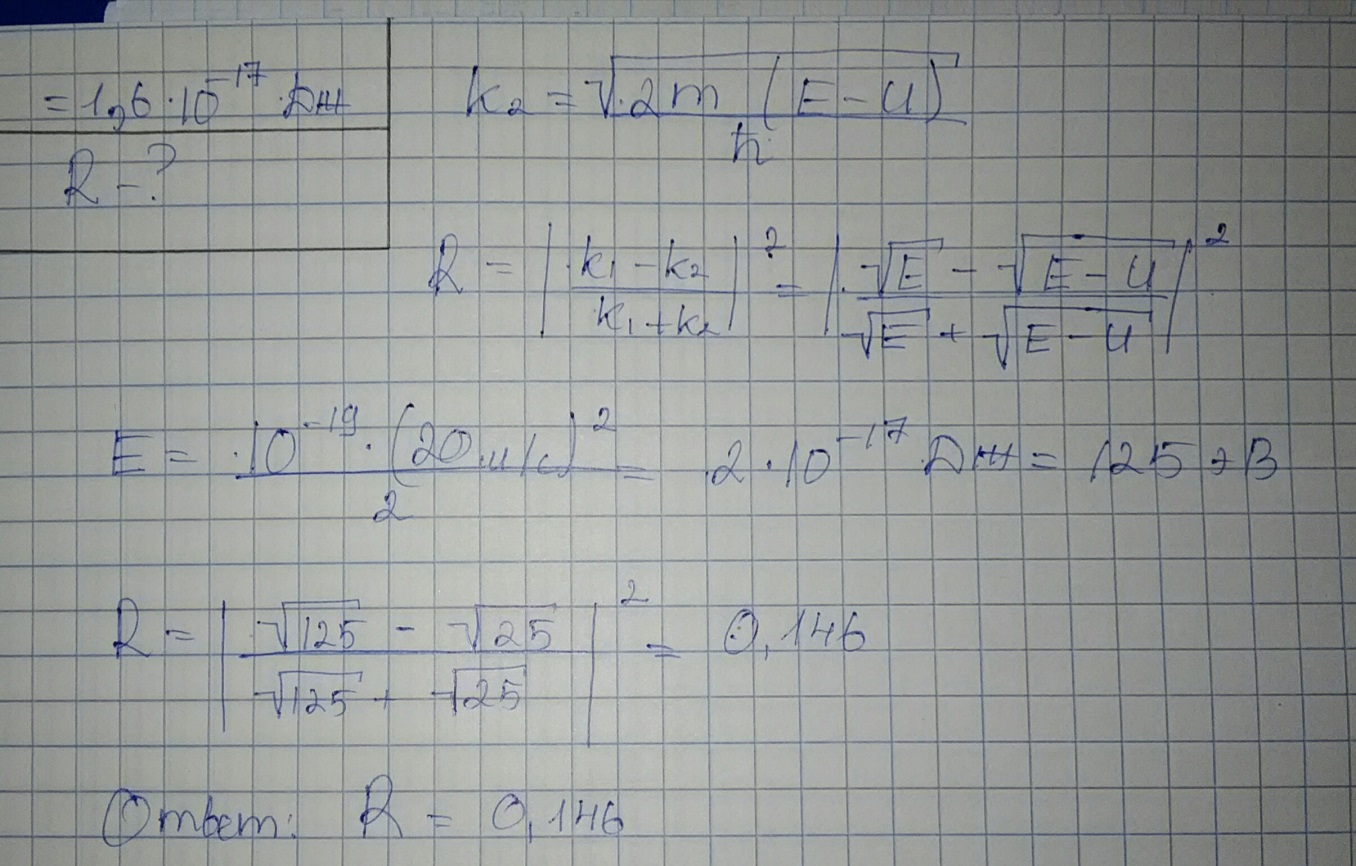 = 1,6 · 10⁻¹⁷ Дж
R - ?
k₂ = √2m (E - U) / ħ
R = | k₁ - k₂ / k₁ + k₂ |² = | √E - √E - U / √E + √E - U |²
E = 10⁻¹⁹ · (20 м/с)² / 2 = 2 · 10⁻¹⁷ Дж = 125 эВ
R = | √125 - √25 / √125 + √25 |² = 0,146
Ответ: R = 0,146